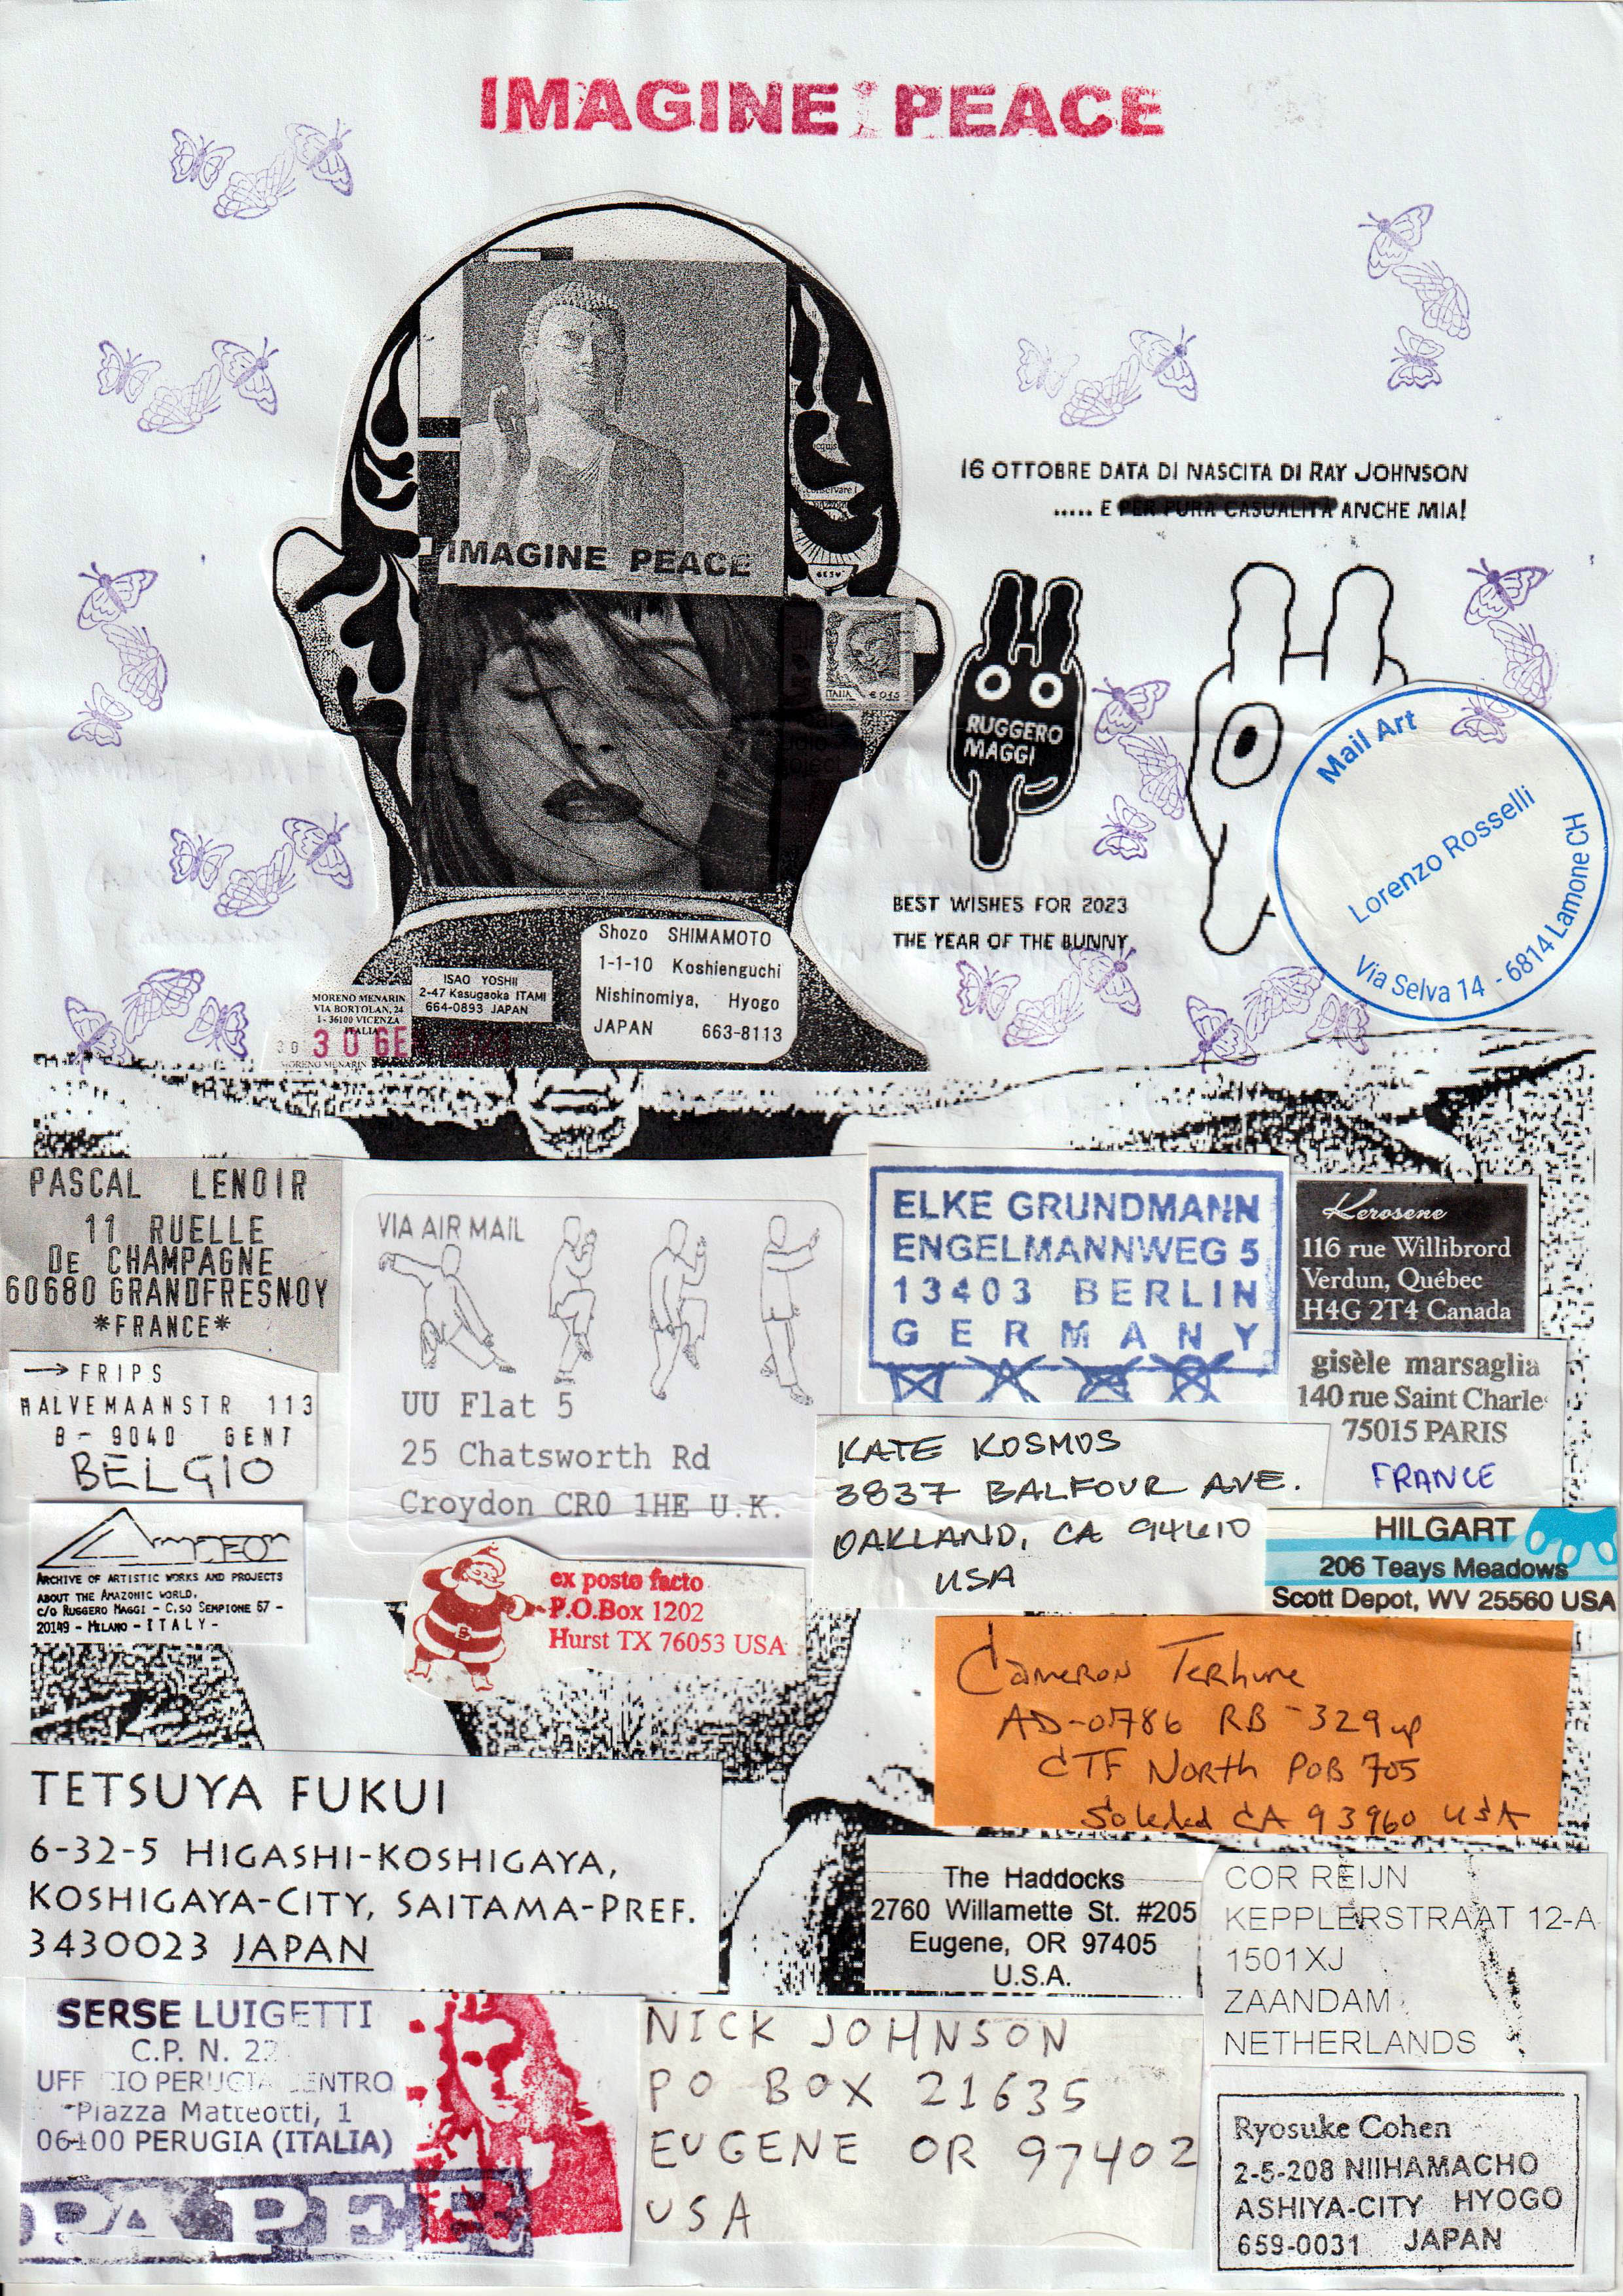 IMAGINE PEACE
16 OTTOBRE DATA DI NASCITA DI RAY JOHNSON
..... E PER PURA CASUALITÀ ANCHE MIA!
IMAGINE PEACE
ITALIA € 0,45
RUGGERO
MAGGI
BEST WISHES FOR 2023
THE YEAR OF THE BUNNY
Mail Art
Lorenzo Rosselli
Via Selva 14 - 6814 Lamone CH
Shozo SHIMAMOTO
1-1-10 Koshienguchi
Nishinomiya, Hyogo
JAPAN 663-8113
ISAO YOSHII
2-47 Kasugaoka ITAMI
664-0893 JAPAN
MORENO MENARIN
VIA BORTOLAN, 24
I - 36100 VICENZA
ITALIA
30 GE
MORENO MENARIN
PASCAL LENOIR
11 RUELLE
De CHAMPAGNE
60680 GRANDFRESNOY
*FRANCE*
VIA AIR MAIL
UU Flat 5
25 Chatsworth Rd
Croydon CR0 1HE U.K.
ELKE GRUNDMANN
ENGELMANNWEG 5
13403 BERLIN
GERMANY
Kerosene
116 rue Willibrord
Verdun, Québec
H4G 2T4 Canada
→ FRIPS
MALVEMAANSTR 113
B - 9040 GENT
BELGIO
gisèle marsaglia
140 rue Saint Charle
75015 PARIS
FRANCE
KATE KOSMOS
3837 BALFOUR AVE.
OAKLAND, CA 94610
USA
ARCHIVE OF ARTISTIC WORKS AND PROJECTS
ABOUT THE AMAZONIC WORLD.
C/O RUGGERO MAGGI - C.SO SEMPIONE 67 -
20149 - MILANO - ITALY -
ex posto facto
P.O.Box 1202
Hurst TX 76053 USA
HILGART
206 Teays Meadows
Scott Depot, WV 25560 USA
Cameron Terhune
AD-0786 RB-329up
CTF North POB 705
Soledad CA 93960 USA
TETSUYA FUKUI
6-32-5 HIGASHI-KOSHIGAYA,
KOSHIGAYA-CITY, SAITAMA-PREF.
3430023 JAPAN
The Haddocks
2760 Willamette St. #205
Eugene, OR 97405
U.S.A.
COR REIJN
KEPPLERSTRAAT 12-A
1501XJ
ZAANDAM
NETHERLANDS
SERSE LUIGETTI
C.P. N. 22
UFFICIO PERUGIA CENTRO
Piazza Matteotti, 1
06100 PERUGIA (ITALIA)
PAPER
NICK JOHNSON
PO BOX 21635
EUGENE OR 97402
USA
Ryosuke Cohen
2-5-208 NIIHAMACHO
ASHIYA-CITY HYOGO
659-0031 JAPAN